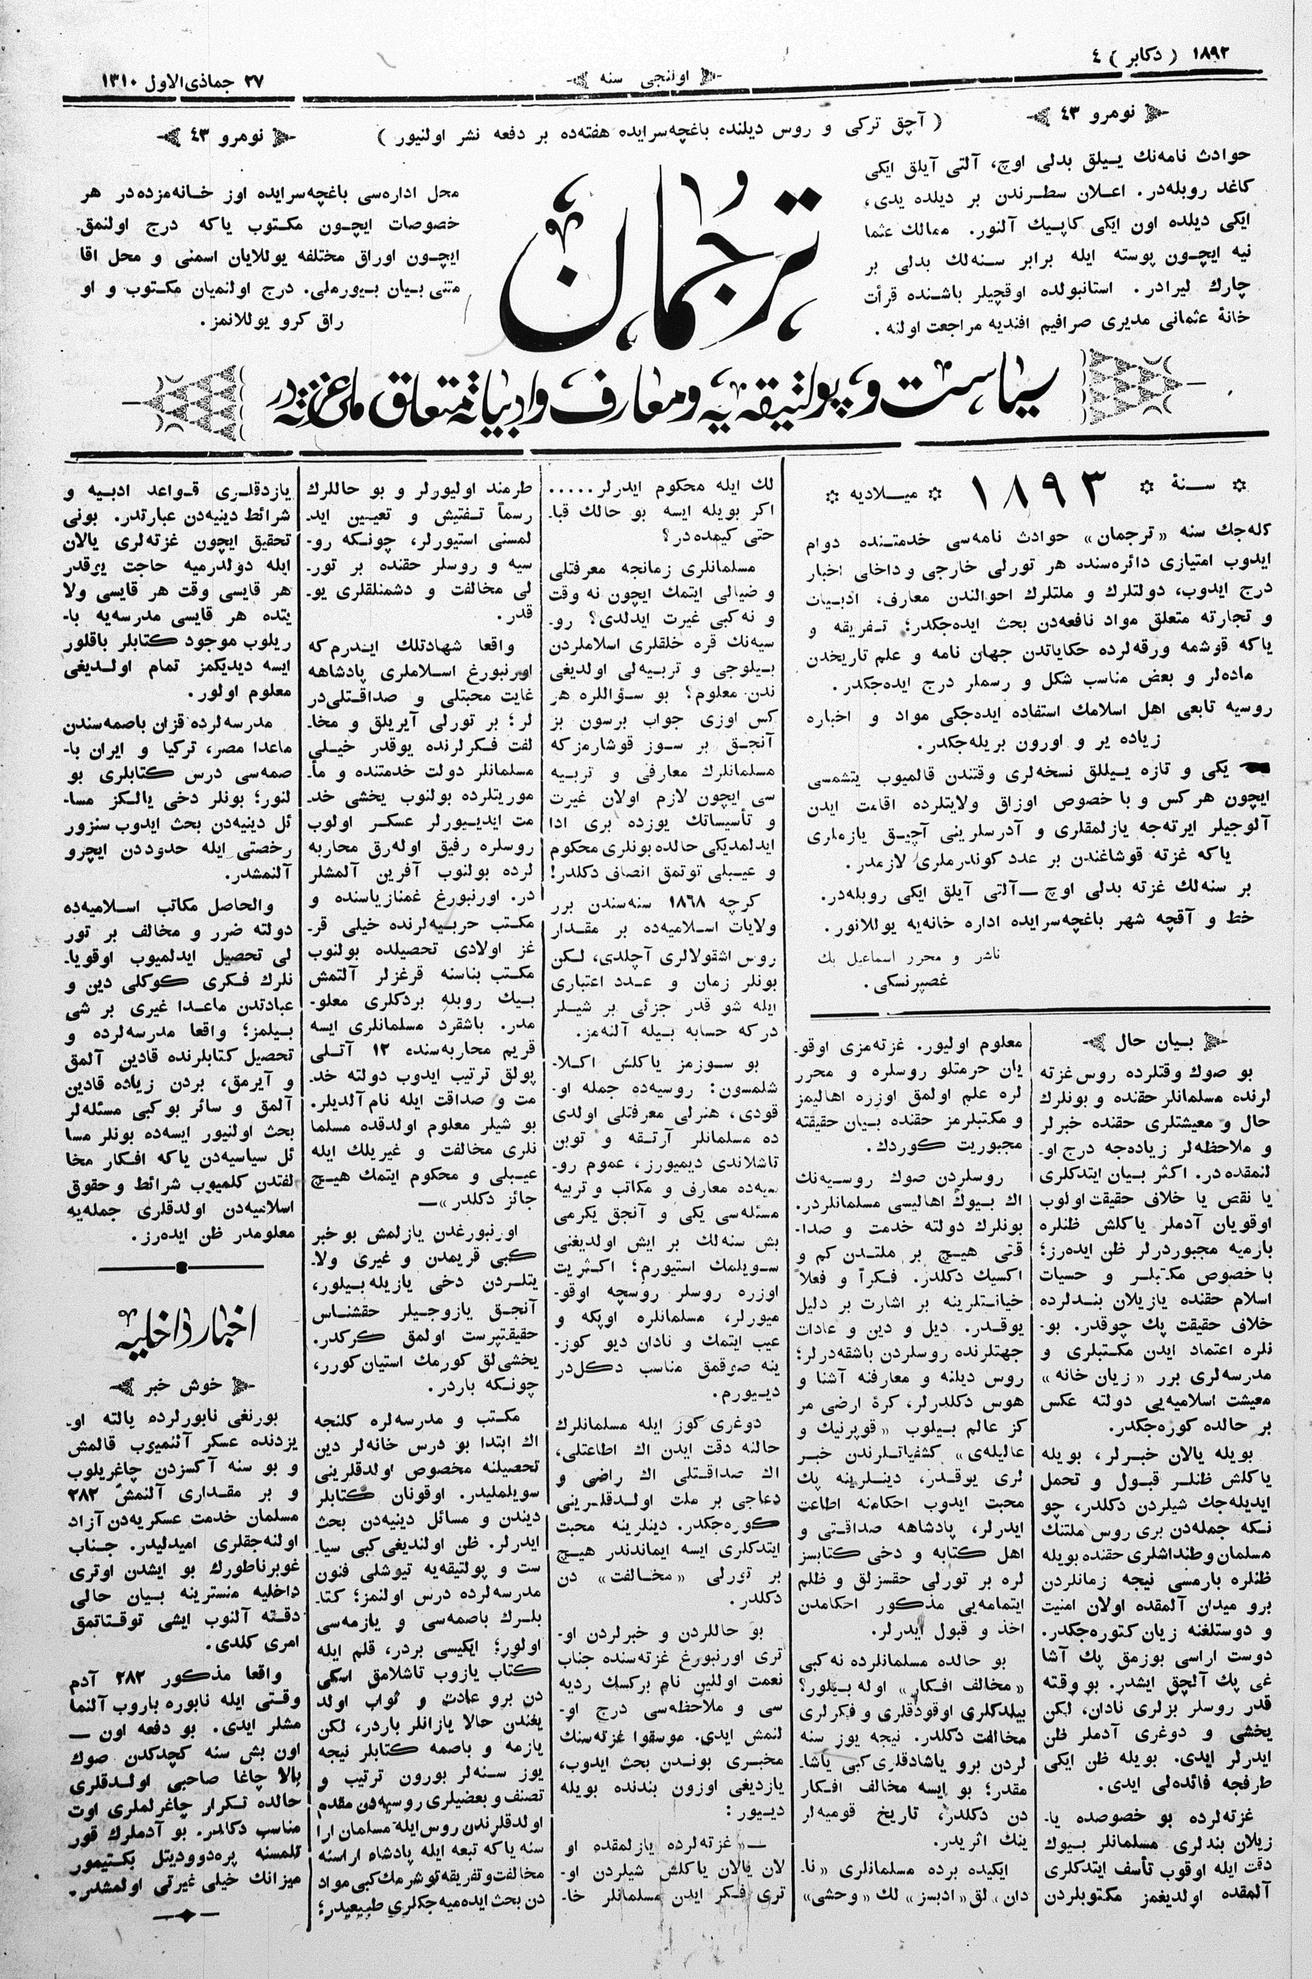 ١٨٩٢ ( دكابر ) ٤
اولنجی سنه
٢٧ جماذی‌الاول ١٣١٠
نومرو ٤٣
( آچق تركی و روس دیلنده باغچه‌سرایده هفته‌ده بر دفعه نشر اولنیور )
نومرو ٤٣
حوادث نامه‌نك ییلق بدلی اوچ، آلتی آیلق ایكی
كاغد روبله‌در. اعلان سطرندن بر دیلده یدی،
ایكی دیلده اون ایكی كاپیك آلنور. ممالك عثما
نیه ایچون پوسته ایله برابر سنه‌لك بدلی بر
چارك لیرادر. استانبولده اوقچیلر باشنده قرأت
خانهٔ عثمانی مدیری صرافیم افندیه مراجعت اولنه.
ترجمان
محل اداره‌سی باغچه‌سرایده اوز خانه‌مزده‌در هر
خصوصات ایچون مكتوب یاكه درج اولنمق
ایچون اوراق مختلفه یوللایان اسمنی و محل اقا
متنی بیان بیورملی. درج اولنمیان مكتوب و او
راق كرو یوللانمز.
سیاست و پولتیقه‌یه و معارف و ادبیاته متعلق ملی غزته‌در
سنهٔ ١٨٩٣ میلادیه
كله‌جك سنه «ترجمان» حوادث نامه‌سی خدمتنده دوام
ایدوب امتیازی دائره‌سنده هر تورلی خارجی و داخلی اخبار
درج ایدوب، دولتلرك و ملتلرك احوالندن معارف، ادبیات
و تجارته متعلق مواد نافعه‌دن بحث ایده‌جكدر؛ تفریقه و
یاكه قوشمه ورقه‌لرده حكایاتدن جهان نامه و علم تاریخدن
ماده‌لر و بعض مناسب شكل و رسملر درج ایده‌جكدر.
روسیه تابعی اهل اسلامك استفاده ایده‌جكی مواد و اخباره
زیاده یر و اورون بریله‌جكدر.
یكی و تازه ییللق نسخه‌لری وقتندن قالمیوب یتشمسی
ایچون هركس و با خصوص اوزاق ولایتلرده اقامت ایدن
آلوجیلر ایرته‌جه یازلمقلری و آدرسلرینی آچیق یازملری
یاكه غزته قوشاغندن بر عدد كوندرملری لازمدر.
بر سنه‌لك غزته بدلی اوچ — آلتی آیلق ایكی روبله‌در.
خط و آقچه شهر باغچه‌سرایده اداره خانه‌یه یوللانور.
ناشر و محرر اسماعیل بك
غصپرنسكی.
بیان حال
بو صوك وقتلرده روس غزته
لرنده مسلمانلر حقنده و بونلرك
حال و معیشتلری حقنده خبرلر
و ملاحظه‌لر زیاده‌جه درج او-
لنمقده‌در. اكثر بیان ایتدكلری
یا نقص یا خلاف حقیقت اولوب
اوقویان آدملر یاكلش ظنلره
بارمیه مجبوردرلر ظن ایده‌رز؛
با خصوص مكتبلر و حسیات
اسلام حقنده یازیلان بندلرده
خلاف حقیقت پك چوقدر. بو-
نلره اعتماد ایدن مكتبلری و
مدرسه‌لری برر «زیان خانه»
معیشت اسلامیه‌یی دولته عكس
بر حالده كوره‌جكدر.
بویله یالان خبرلر، بویله
یاكلش ظنلر قبول و تحمل
ایدیله‌جك شیلردن دكلدر، چو
نكه جمله‌دن بری روس ملتنك
مسلمان وطنداشلری حقنده بویله
ظنلره بارمسی نیجه زمانلردن
برو میدان آلمقده اولان امنیت
و دوستلغنه زیان كتوره‌جكدر.
دوست اراسی بوزمق پك آشا
غی پك آلچق ایشدر. بو وقته
قدر روسلر بزلری نادان، لیكن
یخشی و دوغری آدملر ظن
ایدرلر ایدی. بویله ظن ایكی
طرفجه فائده‌لی ایدی.
غزته‌لرده بو خصوصده یا-
زیلان بندلری مسلمانلر بیوك
دقت ایله اوقوب تأسف ایتدكلری
آلمقده اولدیغمز مكتوبلردن
معلوم اولیور. غزته‌مزی اوقو-
یان حرمتلو روسلره و محرر
لره علم اولمق اوزره اهالیمز
و مكتبلرمز حقنده بیان حقیقته
مجبوریت كوردك.
روسلردن صوك روسیه‌نك
اك بیوك اهالیسی مسلمانلردر.
بونلرك دولته خدمت و صدا-
قتی هیچ بر ملتدن كم و
اكسیك دكلدر. فكراً و فعلاً
خیانتلرینه بر اشارت بر دلیل
یوقدر. دیل و دین و عادات
جهتلرنده روسلردن باشقه‌درلر؛
روس دیلنه و معارفنه آشنا و
هوس دكلدرلر، كرهٔ ارضی مر
كز عالم بیلوب «قوپرنیك و
عالیله‌ی» كشفیاتلرندن خبر
لری یوقدر، دینلرینه پك
محبت ایدوب احكامنه اطاعت
ایدرلر، پادشاهه صداقتی و
اهل كتابه و دخی كتابسز
لره بر تورلی حقسزلق و ظلم
ایتمامه‌یی مذكور احكامدن
اخذ و قبول ایدرلر.
بو حالده مسلمانلرده نه كبی
«مخالف افكار» اوله بیلور؟
بیلدكلری اوقودقلری و فكرلری
مخالفت دكلدر. نیجه یوز سنه
لردن برو یاشادقلری كبی یاشا-
مقدر؛ بو ایسه مخالف افكار
دن دكلدر، تاریخ قومیه‌لر
ینك اثریدر.
ایكیده برده مسلمانلری «نا-
دان» لق «ادبسز» لك «وحشی»
لك ایله محكوم ایدرلر.....
اكر بویله ایسه بو حالك قبا-
حتی كیمده‌در؟
مسلمانلری زمانجه معرفتلی
و ضیالی ایتمك ایچون نه وقت
و نه كبی غیرت ایدلدی؟ رو-
سیه‌نك قره خلقلری اسلاملردن
بیلوجی و تربیه‌لی اولدیغی
ندن معلوم؟ بو سؤاللره هر
كس اوزی جواب برسون بز
آنجق بر سوز قوشارمز كه
مسلمانلرك معارفی و تربیه
سی ایچون لازم اولان غیرت
و تأسیساتك یوزده بری ادا
ایدلمدیكی حالده بونلری محكوم
و عیبلی توتمق انصاف دكلدر!
كرچه ١٨٦٨ سنه‌سندن برر
ولایات اسلامیه‌ده بر مقدار
روس اشقولالری آچلدی، لكن
بونلر زمان و عدد اعتباری
ایله شو قدر جزئی بر شیلر
در كه حسابه بیله آلنه‌مز.
بو سوزمز یاكلش اكلا-
شلمسون: روسیه‌ده جمله او-
قودی، هنرلی معرفتلی اولدی
ده مسلمانلر آرتقه و توبن
تاشلاندی دیمیورز، عموم رو-
سیه‌ده معارف و مكاتب و تربیه
مسئله‌سی یكی و آنجق یكرمی
بش سنه‌لك بر ایش اولدیغنی
سویلمك استیورم؛ اكثریت
اوزره روسلر روسچه اوقو-
میورلر، مسلمانلره اوپكه و
عیب ایتمك و نادان دیو كوز-
ینه صوقمق مناسب دكل‌در
دییورم.
دوغری كوز ایله مسلمانلرك
حالنه دقت ایدن اك اطاعتلی،
اك صداقتلی اك راضی و
دعاجی بر ملت اولدقلرینی
كوره‌جكدر. دینلرینه محبت
ایتدكلری ایسه ایماندندر هیچ
بر تورلی «مخالفت» دن
دكلدر.
بو حاللردن و خبرلردن او-
تری اورنبورغ غزته‌سنده جناب
نعمت اوللین نام بركسك ردیه
سی و ملاحظه‌سی درج او-
لنمش ایدی. موسقوا غزته‌سنك
مخبری بوندن بحث ایدوب،
یازدیغی اوزون بندنده بویله
دیور:
— «غزته‌لرده یازلمقده او
لان یالان یاكلش شیلردن او-
تری فكر ایدن مسلمانلر خا-
طرمند اولیورلر و بو حاللرك
رسماً تفتیش و تعیین اید-
لمسنی استیورلر، چونكه رو-
سیه و روسلر حقنده بر تور-
لی مخالفت و دشمنلقلری یو-
قدر.
واقعا شهادتلك ایندرم كه
اورنبورغ اسلاملری پادشاهه
غایت محبتلی و صداقتلی‌در
لر؛ بر تورلی آیریلق و مخا-
لفت فكرلرنده یوقدر خیلی
مسلمانلر دولت خدمتنده و مأ-
موریتلرده بولنوب یخشی خد-
مت ایدیورلر عسكر اولوب
روسلره رفیق اوله‌رق محاربه
لرده بولنوب آفرین آلمشلر
در. اورنبورغ غمنازیاسنده و
مكتب حربیه‌لرنده خیلی قر-
غز اولادی تحصیلده بولنوب
مكتب بناسنه قرغزلر آلتمش
بیك روبله بردكلری معلو-
مدر. باشقرد مسلمانلری ایسه
قریم محاربه‌سنده ١٢ آتلی
پولق ترتیب ایدوب دولته خد-
مت و صداقت ایله نام آلدیلر.
بو شیلر معلوم اولدقده مسلما
نلری مخالفت و غیریلك ایله
عیبلی و محكوم ایتمك هیچ
جائز دكلدر» —
اورنبورغدن یازلمش بو خبر
كبی قریمدن و غیری ولا-
یتلردن دخی یازیله بیلور،
آنجق یازوجیلر حقشناس
حقیقتپرست اولمق كركدر.
یخشی‌لق كورمك استیان كورر،
چونكه باردر.
مكتب و مدرسه‌لره كلنجه
اك ابتدا بو درس خانه‌لر دین
تحصیلنه مخصوص اولدقلرینی
سویلملیدر. اوقونان كتابلر
دیندن و مسائل دینیه‌دن بحث
ایدرلر. ظن اولندیغی كبی سیا-
ست و پولتیقه‌یه تیوشلی فنون
مدرسه‌لرده درس اولنمز؛ كتا-
بلرك باصمه‌سی و یازمه‌سی
اولور؛ ایكیسی بردر، قلم ایله
كتاب یازوب تاشلامق اسكی
دن برو عادت و ثواب اولد
یغندن حالا یازانلر باردر، لكن
یازمه و باصمه كتابلر نیجه
یوز سنه‌لر بورون ترتیب و
تصنف و بعضیلری روسیه‌دن مقدم
اولدقلرندن روس ایله مسلمان ارا
سنه یاكه تبعه ایله پادشاه اراسنه
مخالفت و تفریقه توشرمك كبی مواد
دن بحث ایده‌میه‌جكلری طبیعیدر؛
یازدقلری قواعد ادبیه و
شرائط دینیه‌دن عبارتدر. بونی
تحقیق ایچون غزته‌لری یالان
ایله دولدرمیه حاجت یوقدر
هر قایسی وقت هر قایسی ولا
یتده هر قایسی مدرسه‌یه با-
ریلوب موجود كتابلر باقلور
ایسه دیدیكمز تمام اولدیغی
معلوم اولور.
مدرسه‌لرده قزان باصمه‌سندن
ماعدا مصر، تركیا و ایران با-
صمه‌سی درس كتابلری بو
لنور؛ بونلر دخی یالكز مسا-
ئل دینیه‌دن بحث ایدوب سنزور
رخصتی ایله حدوددن ایچرو
آلنمشدر.
والحاصل مكاتب اسلامیه‌ده
دولته ضرر و مخالف بر تور
لی تحصیل ایدلمیوب اوقویا-
نلرك فكری كوكلی دین و
عبادتدن ماعدا غیری بر شی
بیلمز؛ واقعا مدرسه‌لرده و
تحصیل كتابلرنده قادین آلمق
و آیرمق، بردن زیاده قادین
آلمق و سائر بو كبی مسئله‌لر
بحث اولنیور ایسه‌ده بونلر مسا
ئل سیاسیه‌دن یاكه افكار مخا
لفتدن كلمیوب شرائط و حقوق
اسلامیه‌دن اولدقلری جمله‌یه
معلومدر ظن ایده‌رز.
اخبار داخلیه
خوش خبر
بورنغی نابورلرده یالته او-
یزدنده عسكر آلنمیوب قالمش
و بو سنه آكسزدن چاغریلوب
و بر مقداری آلنمش ٢٨٢
مسلمان خدمت عسكریه‌دن آزاد
اولنه‌جقلری امیدلیدر. جناب
غوبرناطورك بو ایشدن اوتری
داخلیه منسترینه بیان حالی
دقته آلنوب ایشی توقتاتمق
امری كلدی.
واقعا مذكور ٢٨٢ آدم
وقتی ایله نابوره باروب آلنما
مشلر ایدی. بو دفعه اون —
اون بش سنه كچدكدن صوك
بالا چاغا صاحبی اولدقلری
حالده تكرار چاغرلملری اوت
مناسب دكلدر. بو آدملرك قور
تلمسنه پره‌دوودیتل بكتیمور
میرزانك خیلی غیرتی اولمشدر.